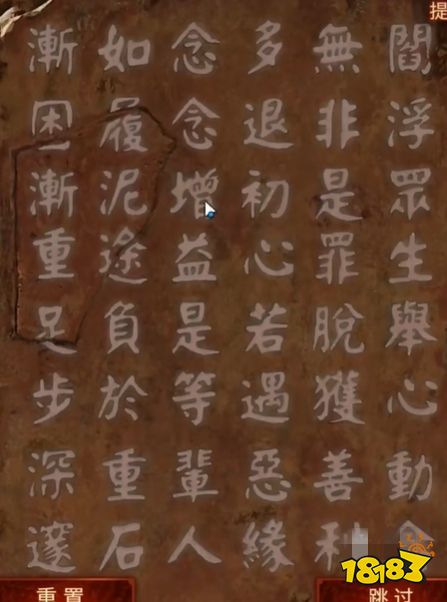 提
閻浮眾生舉心動
無非是罪脫獲善利
多退初心若遇惡緣
念念增益是等輩人
如履泥途負於重石
漸困漸重足步深邃
18183
重置
跳过